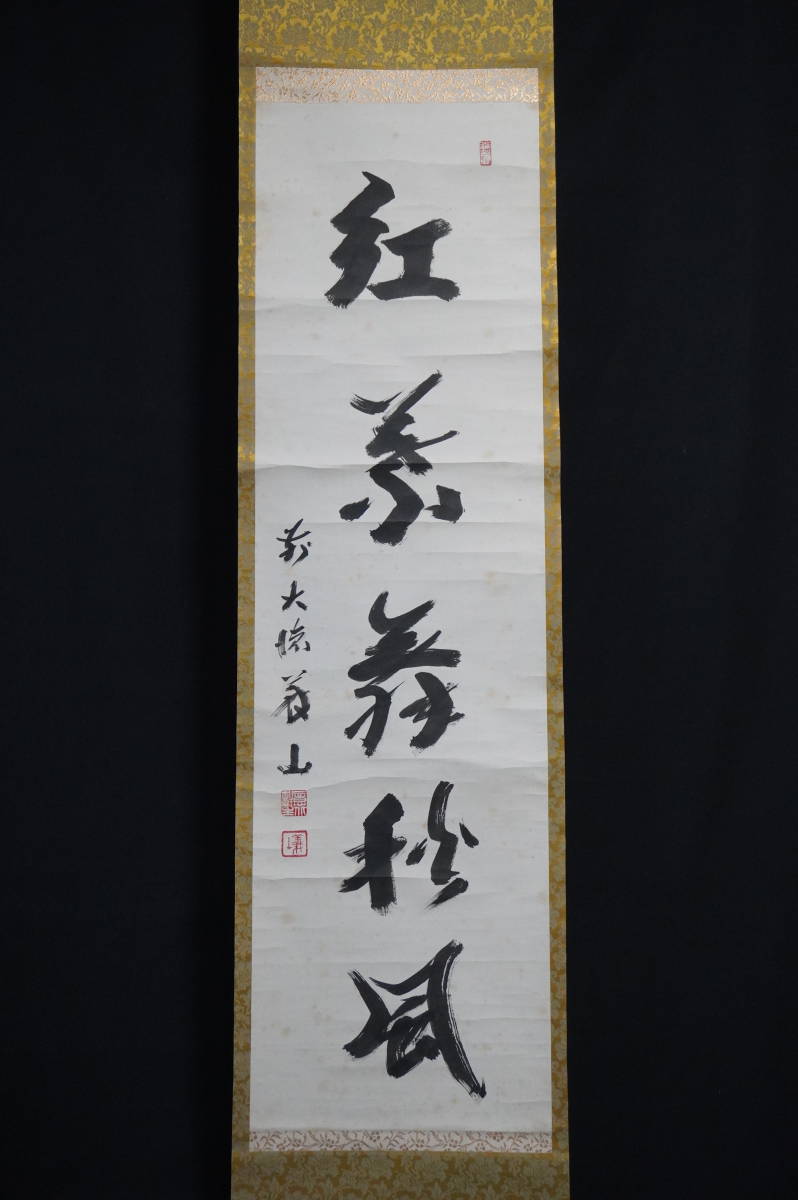 紅葉舞秋風
前大徳義山